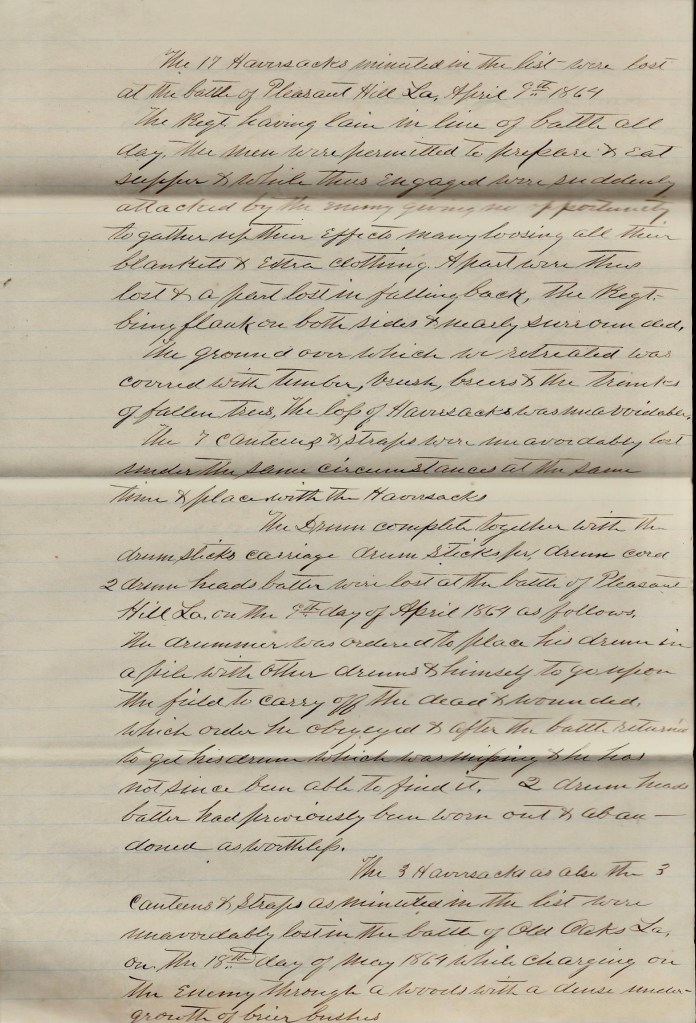 The 17 Haversacks minuted in the list were lost
at the battle of Pleasant Hill La, April 9th 1864
The Regt. having lain in line of battle all
day. The men were permitted to prepare & Eat
supper & while thus Engaged were suddenly
attacked by the Enemy giving no opportunity
to gather up their Effects many loosing all their
blankets & Extra clothing. A part were thus
lost & a part lost in falling back, The Regt.
being flank on both sides & nearly surrounded.
The ground over which we retreated was
covered with timber, brush, briers & the trunks
of fallen trees, The loss of Haversacks was unavoidable.
The 7 canteens & straps were unavoidably lost
under the same circumstances at the same
time & place with the Haversacks
The Drum complete together with the
drumsticks carriage drum sticks pr, drum cord
2 drum heads batter were lost at the battle of Pleasant
Hill La. on the 9th day of April 1864 as follows.
The drummer was ordered to place his drum in
a pile with other drums & himself to go upon
the field to carry off the dead & wounded.
which order he obeyed & after the battle returned
to get his drum which was missing & he has
not since been able to find it. 2 drum heads
batter had previously been worn out & aban-
doned as worthless.
The 3 Haversacks as also the 3
Canteens & Straps as minuted in the list were
unavoidably lost in the battle of Old Oaks La.
on the 18th day of May 1864 while charging on
the Enemy through a woods with a dense under-
growth of brier bushes